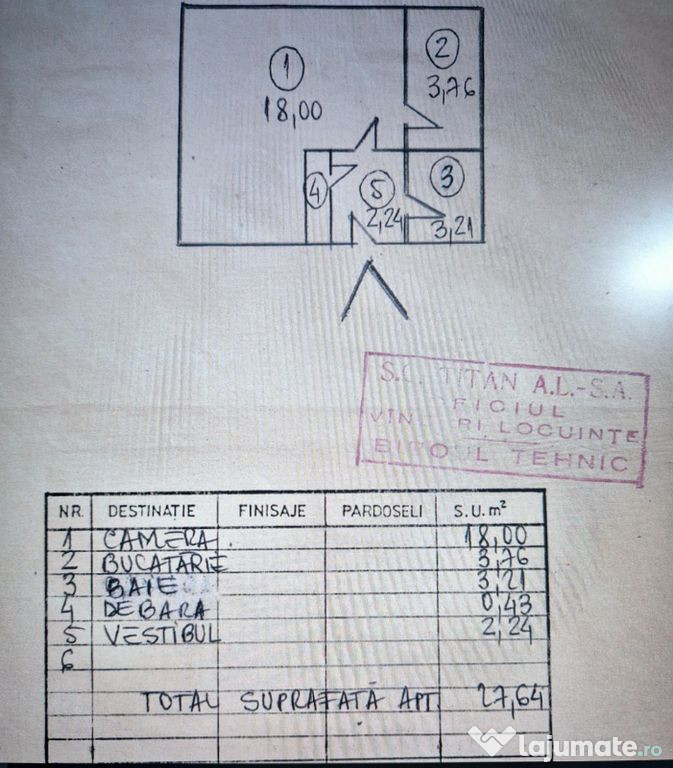 1
18,00
2
3,76
3
3,21
4
5
2,24
S.C. TITAN A.L.-S.A.
FICIUL
VÎN RI LOCUINȚE
BIROUL TEHNIC
NR. DESTINAȚIE FINISAJE PARDOSELI S.U. m²
1 CAMERA 18,00
2 BUCATARIE 3,76
3 BAIE 3,21
4 DEBARA 0,43
5 VESTIBUL 2,24
6
TOTAL SUPRAFAȚĂ APT. 27,64
lajumate.ro